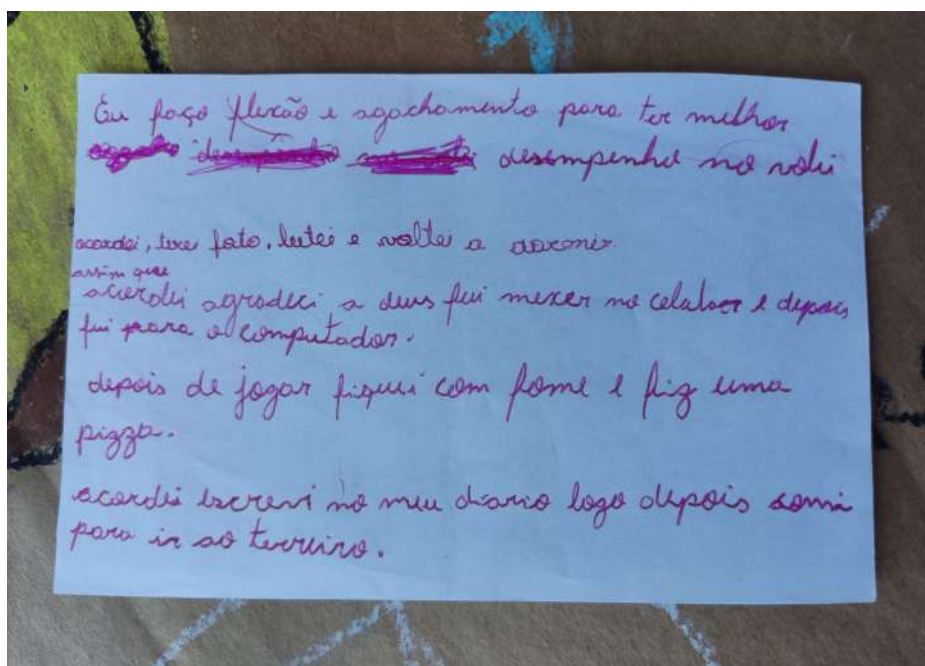 Eu faço flexão e agachamento para ter melhor
desempenho no volei
acordei, tirei foto, lutei e voltei a dormir.
assim que
acordei agradeci a deus fui mexer no celular e depois
fui para o computador.
depois de jogar fiquei com fome e fiz uma
pizza.
acordei escrevi no meu diario logo depois
para ir ao terreiro.